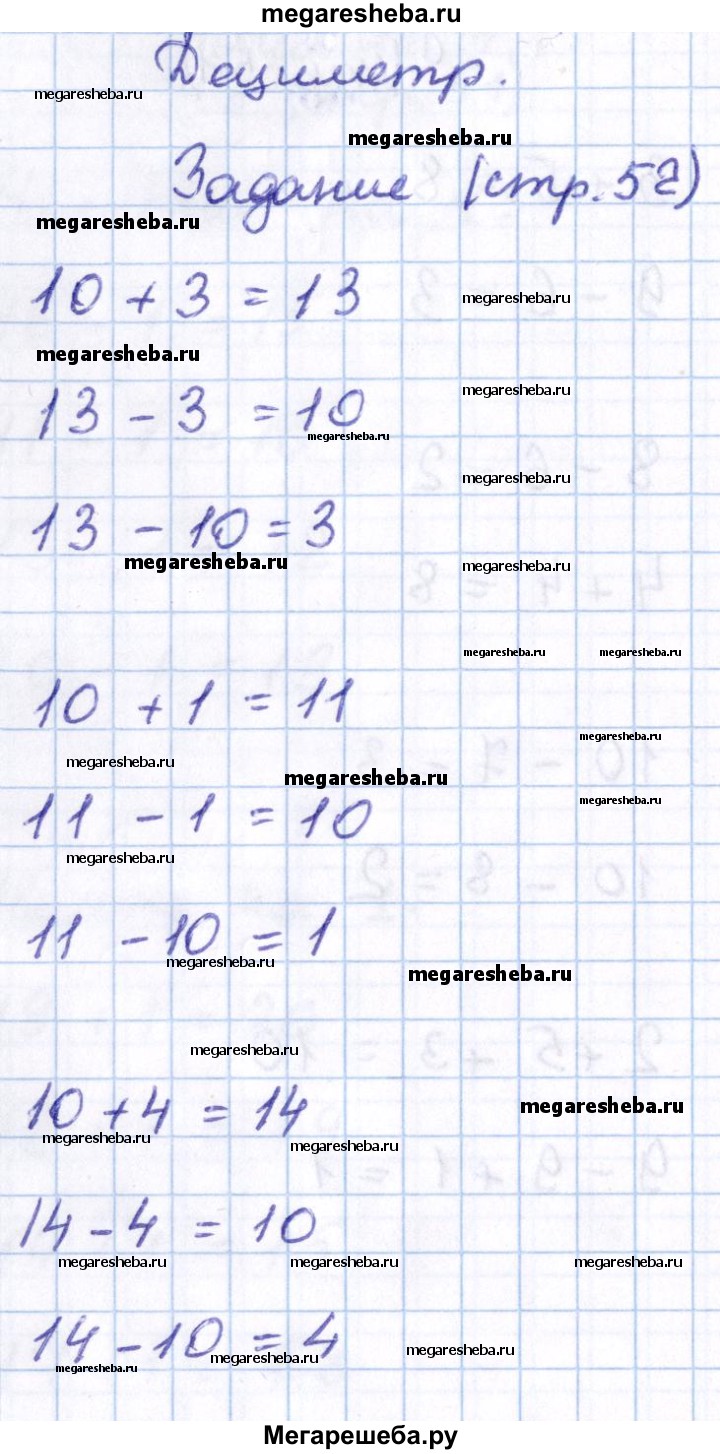 megaresheba.ru
Дециметр.
megaresheba.ru
megaresheba.ru
Задание (стр. 52)
megaresheba.ru
10 + 3 = 13
megaresheba.ru
megaresheba.ru
megaresheba.ru
13 - 3 = 10
megaresheba.ru
megaresheba.ru
13 - 10 = 3
megaresheba.ru
megaresheba.ru
megaresheba.ru
megaresheba.ru
10 + 1 = 11
megaresheba.ru
megaresheba.ru
megaresheba.ru
megaresheba.ru
11 - 1 = 10
megaresheba.ru
11 - 10 = 1
megaresheba.ru
megaresheba.ru
megaresheba.ru
10 + 4 = 14
megaresheba.ru
megaresheba.ru
megaresheba.ru
14 - 4 = 10
megaresheba.ru
megaresheba.ru
megaresheba.ru
14 - 10 = 4
megaresheba.ru
megaresheba.ru
megaresheba.ru
Мегарешеба.ру